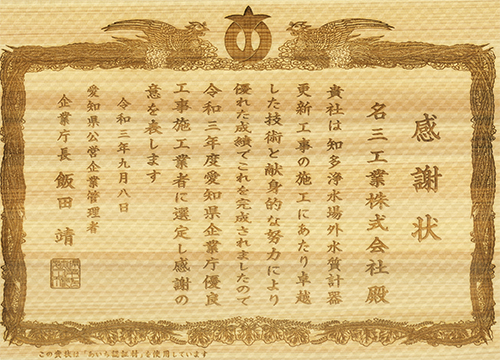 感謝状
名三工業株式会社殿
貴社は知多浄水場外水質計器
更新工事の施工にあたり卓越
した技術と献身的な努力により
優れた成績でこれを完成されましたので
令和三年度愛知県企業庁優良
工事施工業者に選定し感謝の
意を表します
令和三年九月八日
愛知県公営企業管理者
企業庁長 飯田 靖
この賞状は「あいち認証材」を使用しています